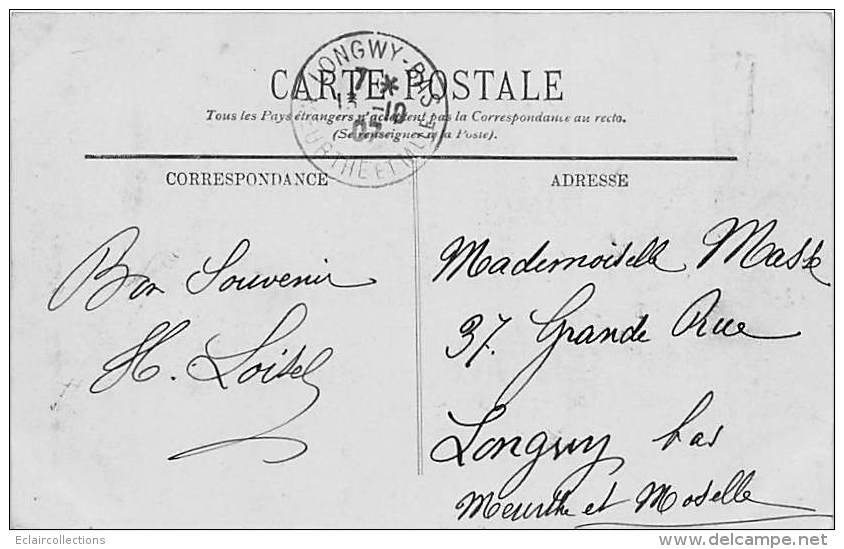 CARTE POSTALE
Tous les Pays étrangers n'acceptent pas la Correspondance au recto.
(Se renseigner à la Poste).
LONGWY-BAS
7 *
-10
07
MEURTHE ET MLLE
CORRESPONDANCE
ADRESSE
Bon Souvenir
H. Loisel
Mademoiselle Masse
37. Grande Rue
Longwy bas
Meurthe et Moselle
Eclaircollections
www.delcampe.net